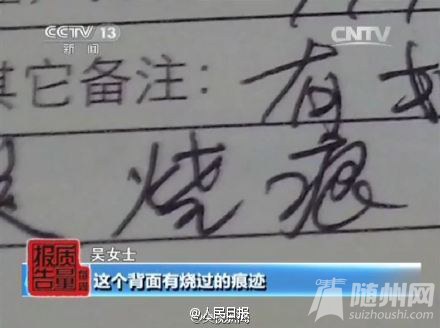 CCTV 13
新闻
CNTV
其它备注：有
烧痕
质量
报告
每周
吴女士
这个背面有烧过的痕迹
@人民日报
@央视新闻
随州网
suizhoushi.com